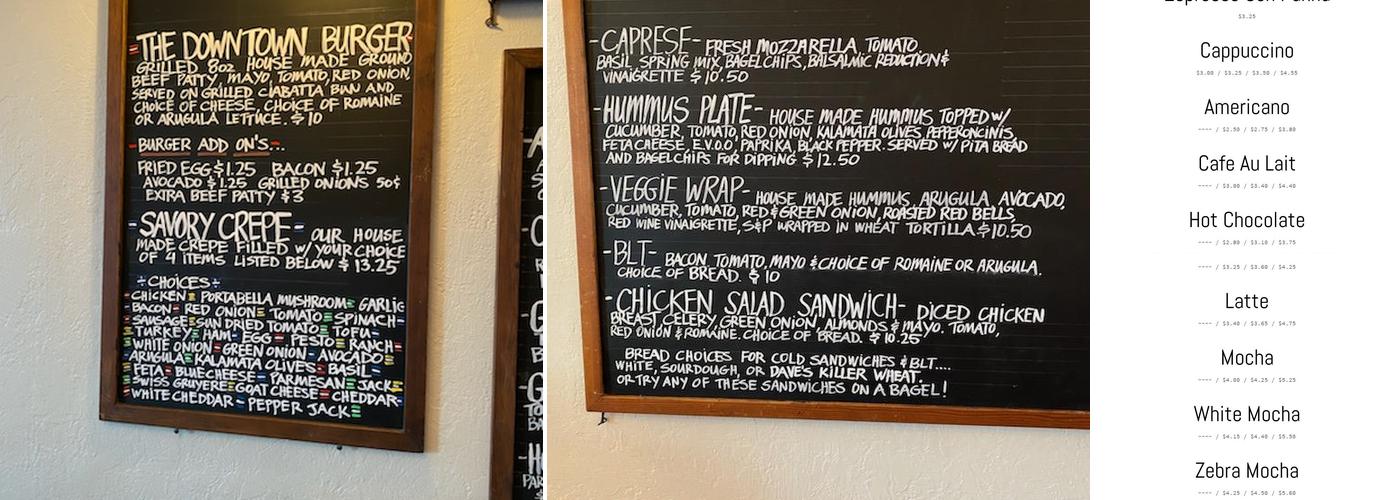 -THE DOWNTOWN BURGER-
GRILLED 8oz HOUSE MADE GROUND
BEEF PATTY, MAYO, TOMATO, RED ONION,
SERVED ON GRILLED CIABATTA BUN AND
CHOICE OF CHEESE, CHOICE OF ROMAINE
OR ARUGULA LETTUCE. $10
-BURGER ADD ON'S...
FRIED EGG $1.25 BACON $1.25
AVOCADO $1.25 GRILLED ONIONS 50¢
EXTRA BEEF PATTY $3
-SAVORY CREPE- OUR HOUSE
MADE CREPE FILLED W/ YOUR CHOICE
OF 4 ITEMS LISTED BELOW $13.25
÷CHOICES÷
CHICKEN= PORTABELLA MUSHROOM= GARLIC
BACON- RED ONION= TOMATO= SPINACH-
SAUSAGE=SUN DRIED TOMATO= TOFU-
TURKEY= HAM- EGG= PESTO= RANCH=
WHITE ONION=GREEN ONION-AVOCADO=
ARUGULA= KALAMATA OLIVES= BASIL-
FETA= BLUE CHEESE= PARMESAN=JACK=
SWISS GRUYERE=GOAT CHEESE=CHEDDAR-
WHITE CHEDDAR= PEPPER JACK=
-CAPRESE- FRESH MOZZARELLA, TOMATO,
BASIL, SPRING MIX, BAGEL CHIPS, BALSALMIC REDUCTION &
VINAIGRETTE $10.50
-HUMMUS PLATE- HOUSE MADE HUMMUS TOPPED W/
CUCUMBER, TOMATO, RED ONION, KALAMATA OLIVES, PEPPERONCINIS,
FETA CHEESE, E.V.O.O, PAPRIKA, BLACK PEPPER. SERVED W/ PITA BREAD
AND BAGEL CHIPS FOR DIPPING $12.50
-VEGGIE WRAP- HOUSE MADE HUMMUS, ARUGULA, AVOCADO,
CUCUMBER, TOMATO, RED & GREEN ONION, ROASTED RED BELLS,
RED WINE VINAIGRETTE, S&P WRAPPED IN WHEAT TORTILLA. $10.50
-BLT- BACON, TOMATO, MAYO & CHOICE OF ROMAINE OR ARUGULA.
CHOICE OF BREAD. $10
-CHICKEN SALAD SANDWICH- DICED CHICKEN
BREAST, CELERY, GREEN ONION, ALMONDS & MAYO. TOMATO,
RED ONION & ROMAINE. CHOICE OF BREAD. $10.25
BREAD CHOICES FOR COLD SANDWICHES & BLT....
WHITE, SOURDOUGH, OR DAVE'S KILLER WHEAT.
OR TRY ANY OF THESE SANDWICHES ON A BAGEL!
$3.25
Cappuccino
$3.00 / $3.25 / $3.50 / $4.55
Americano
---- / $2.50 / $2.75 / $3.80
Cafe Au Lait
---- / $3.00 / $3.40 / $4.40
Hot Chocolate
---- / $2.80 / $3.10 / $3.75
---- / $3.25 / $3.60 / $4.25
Latte
---- / $3.40 / $3.65 / $4.75
Mocha
---- / $4.00 / $4.25 / $5.25
White Mocha
---- / $4.15 / $4.40 / $5.50
Zebra Mocha
---- / $4.25 / $4.50 / $5.60